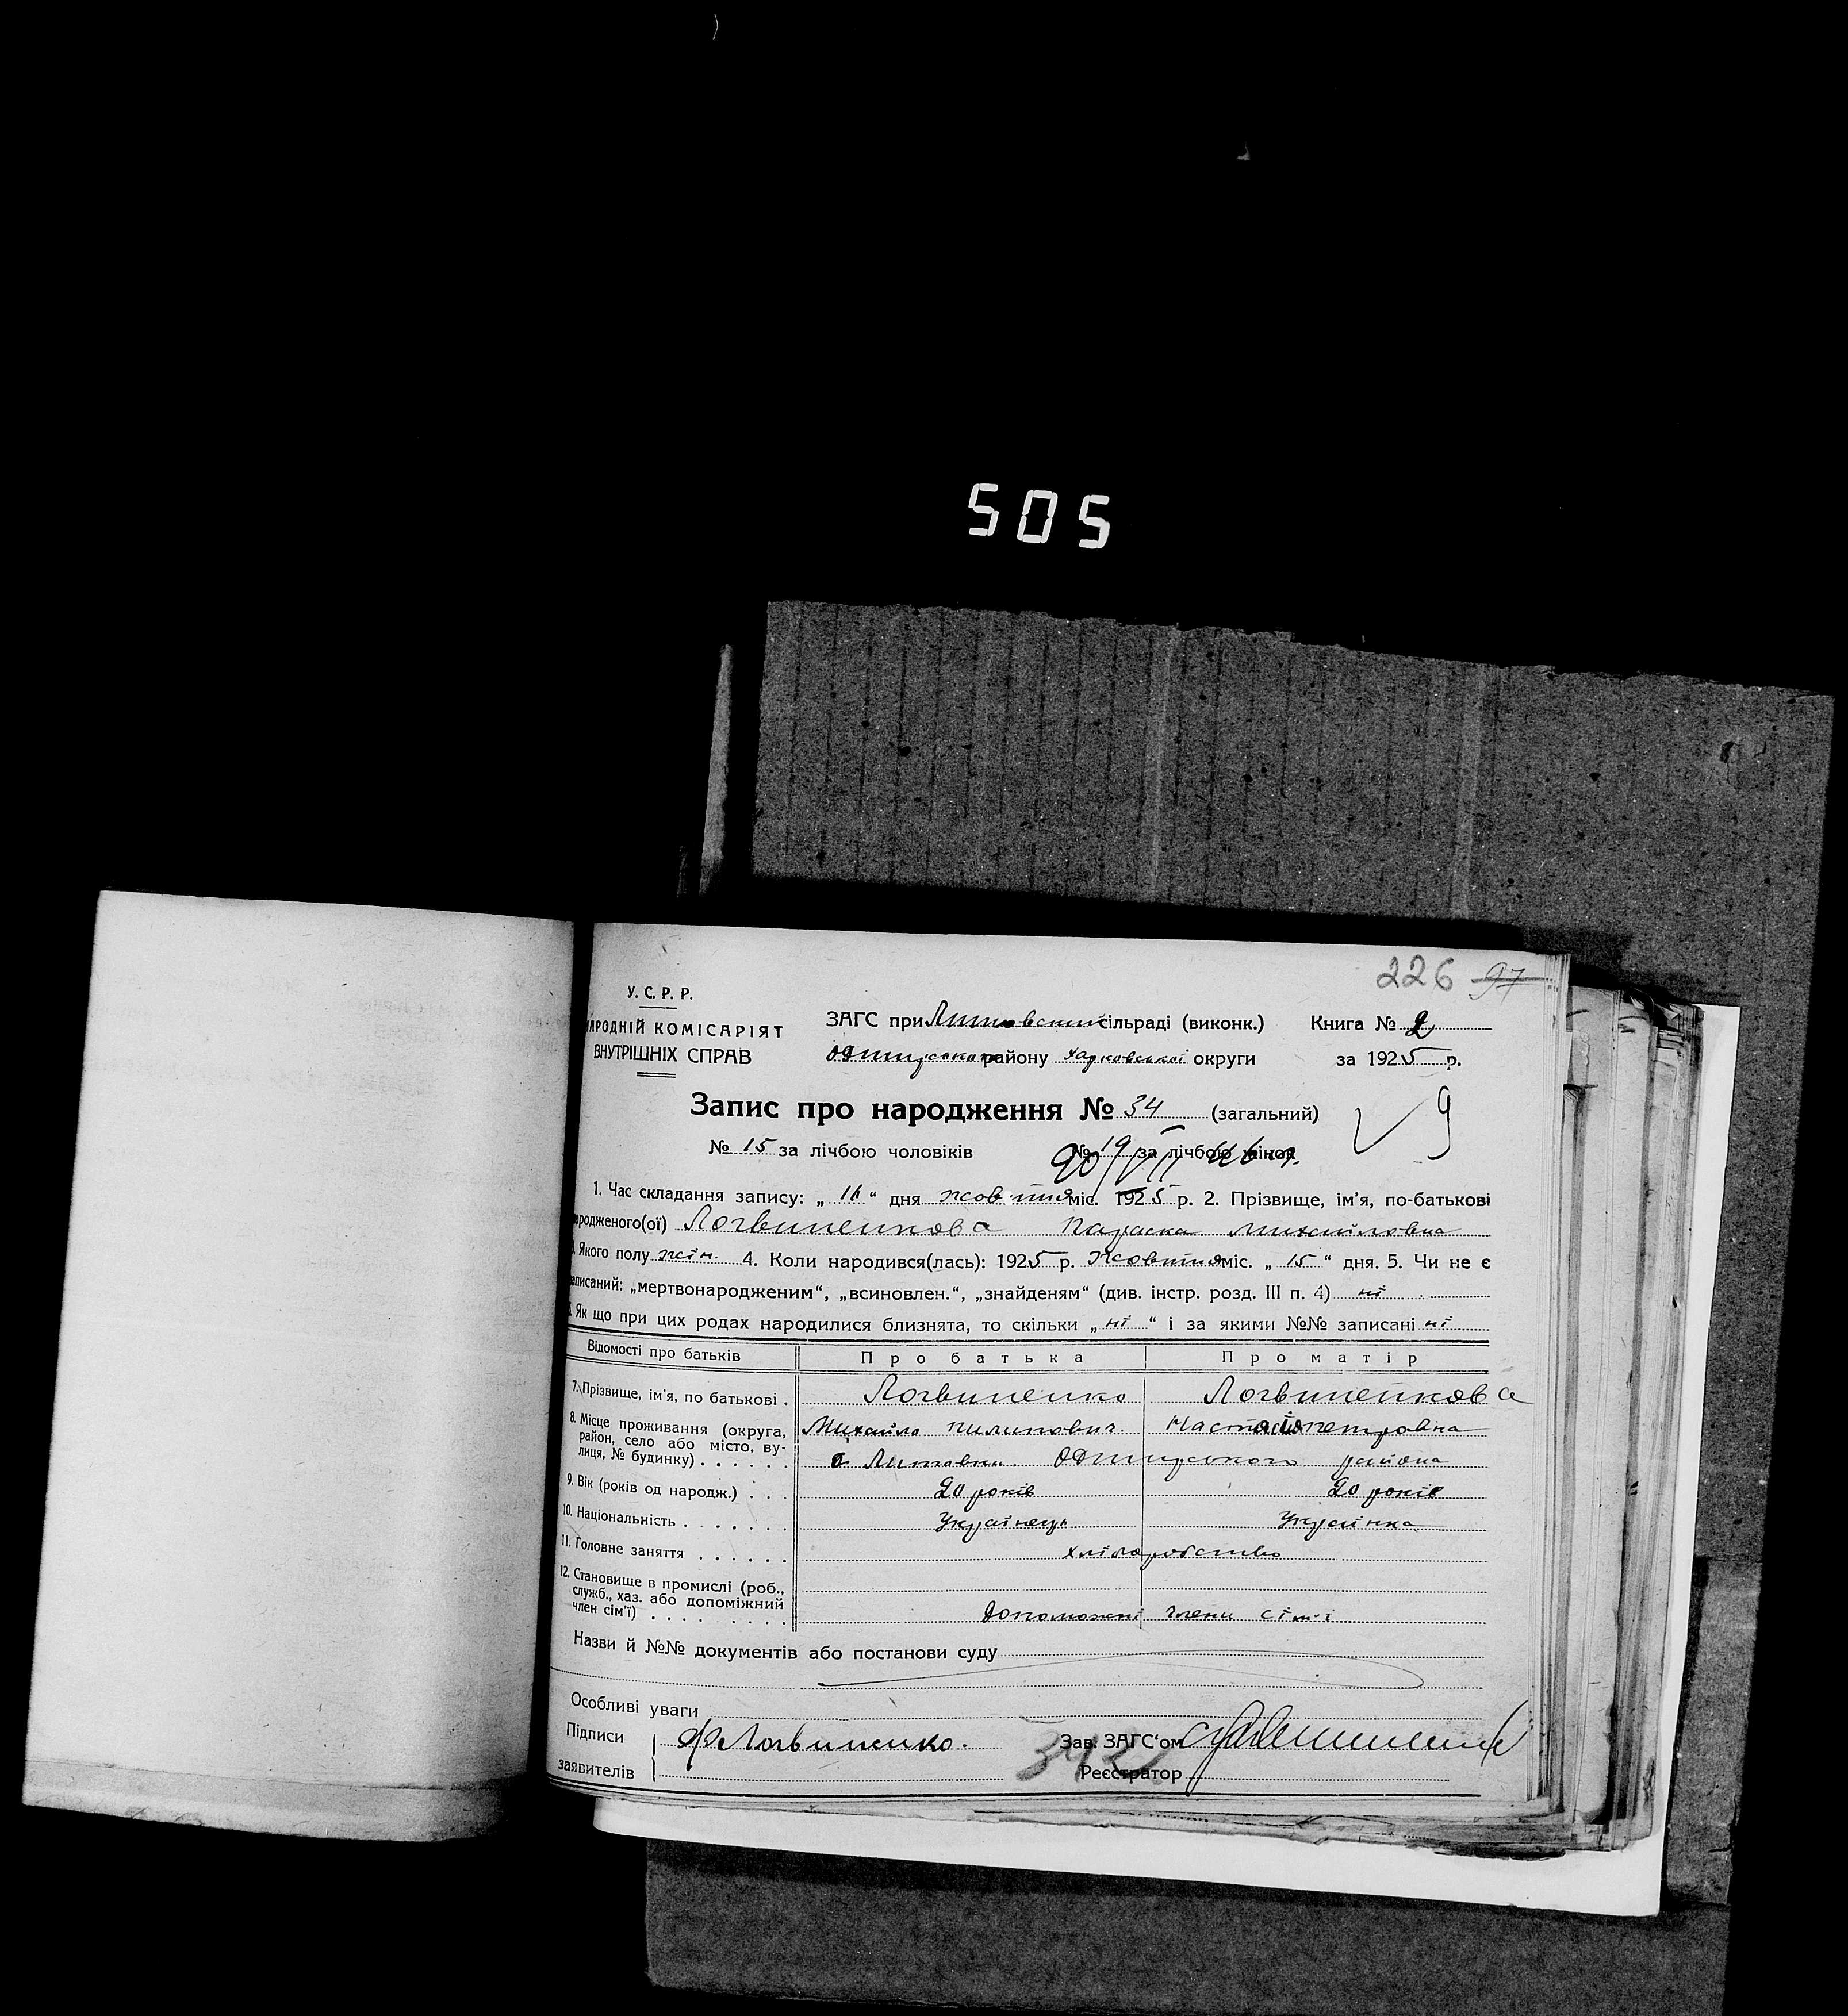 505
226 97
У. С. Р. Р.
НАРОДНІЙ КОМІСАРІЯТ
ВНУТРІШНІХ СПРАВ
ЗАГС при сільраді (виконк.) Книга № 2
району Харковської округи за 1925 р.
Запис про народження № 34 (загальний)
9
№ 15 за лічбою чоловіків № 19 за лічбою жінок
20/VII 46 р.
1. Час складання запису: „ 16 “ дня жовтня міс. 1925 р. 2. Прізвище, ім’я, по-батькові
народженого(ої) Логвиненкова Параска Михайловна
3. Якого полу жін. 4. Коли народився(лась): 1925 р. Жовтня міс. „ 15 “ дня. 5. Чи не є
записаний: „мертвонародженим“, „всиновлен.“, „знайденям“ (див. інстр. розд. III п. 4) ні
6. Як що при цих родах народилися близнята, то скільки „ ні “ і за якими №№ записані ні
Відомості про батьків Про батька Про матір
7. Прізвище, ім’я, по батькові . Логвиненко Логвиненкова
8. Місце проживання (округа, район, село або місто, вулиця, № будинку) . . . . . . Михайло Пилипович Настасія Петровна
с. Литовки района
9. Вік (років од народж.) . . . 20 років 20 років
10. Національність . . . . . . . Українець Українка
11. Головне заняття . . . . . . хліборобство
12. Становище в промислі (роб.,
служб., хаз. або допоміжний
член сім’ї) . . . . . . . . допоможні члени сім'ї
Назви й №№ документів або постанови суду
Особливі уваги
Підписи Логвиненко. Зав. ЗАГС‘ом
заявителів Реєстратор